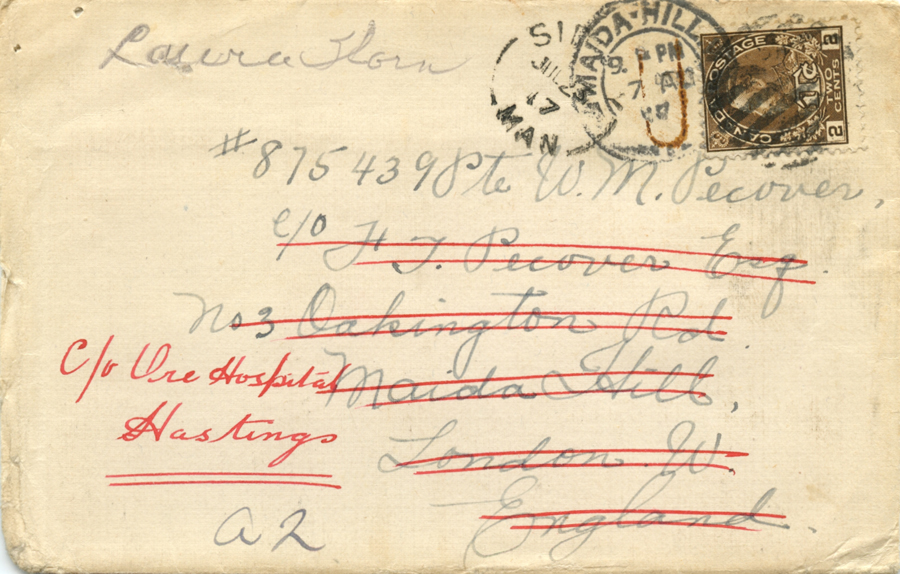 Laura Horn
MAIDA-HILL
9. PM
7
MAN
JUL
17
CANADA POSTAGE
2 TWO CENTS 2
#875439 Pte W. M. Pecover,
c/o H. T. Pecover Esq.
No 3 Oakington Rd
Maida Hill,
London W.
England.
C/o Ore Hospital
Hastings
A2